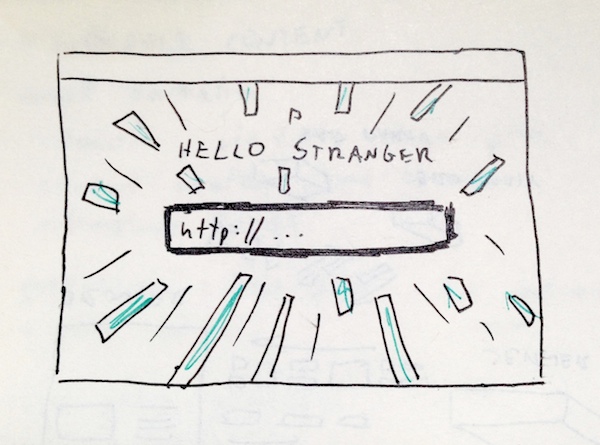 HELLO STRANGER
http://...